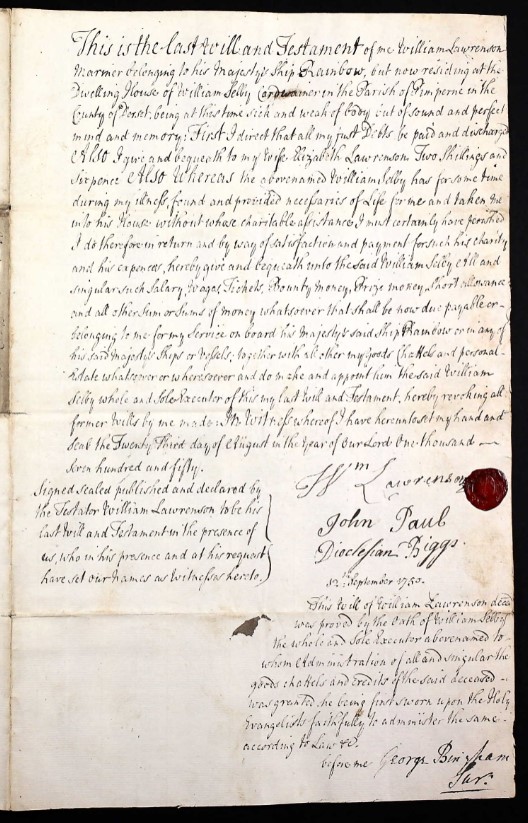 This is the last Will and Testament of me William Lawrenson
Marmer belonging to his Majesty's Ship Rainbow, but now residing at the
Dwelling House of William Selby Cordwainer in the Parish of Pimperne in the
County of Dorset, being at this time sick and weak of body but of sound and perfect
mind and memory; First I direct that all my just Debts be paid and discharged
Also I give and bequeath to my Wife Elizabeth Lawrenson Two Shillings and
Sixpence Also Whereas the abovenamed William Selby has for some time
during my illness, found and provided necessaries of Life for me and taken me
into his House without whose charitable assistance I must certainly have perished
I do therefore in return and by way of satisfaction and payment for such his charity
and his expences, hereby give and bequeath unto the said William Selby All and
singular such Salary, Wages, Tickets, Bounty money, Prize money, short allowance
and all other sum or sums of money whatsoever that shall be now due payable or
belonging to me for my Service on board his Majesty's said Ship Rainbow or in any of
his said Majestys Ships or Vessels; together with all other my goods Chattels and personal
Estate whatsoever or wheresoever and do make and appoint him the said William
Selby whole and sole Executor of this my last Will and Testament, hereby revoking all
former Wills by me made. In Witness whereof I have hereunto set my hand and
seal the Twenty Third day of August in the Year of Our Lord One thousand
Seven hundred and fifty.
Wm Lawrenson
Signed sealed published and declared by
the Testator William Lawrenson to be his
last Will and Testament in the presence of
us, who in his presence and at his request
have set our names as Witnesses hereto.
John Paul
Dioclesian Biggs.
12th September 1750.
This Will of William Lawrenson decd
was proved by the Oath of William Selby
the whole and Sole Executor abovenamed to
whom Administration of all and singular the
goods chattels and credits of the said deceased
was granted he being first sworn upon the Holy
Evangelists faithfully to administer the same
according to Law &c.
before me George Bingham
Sur.